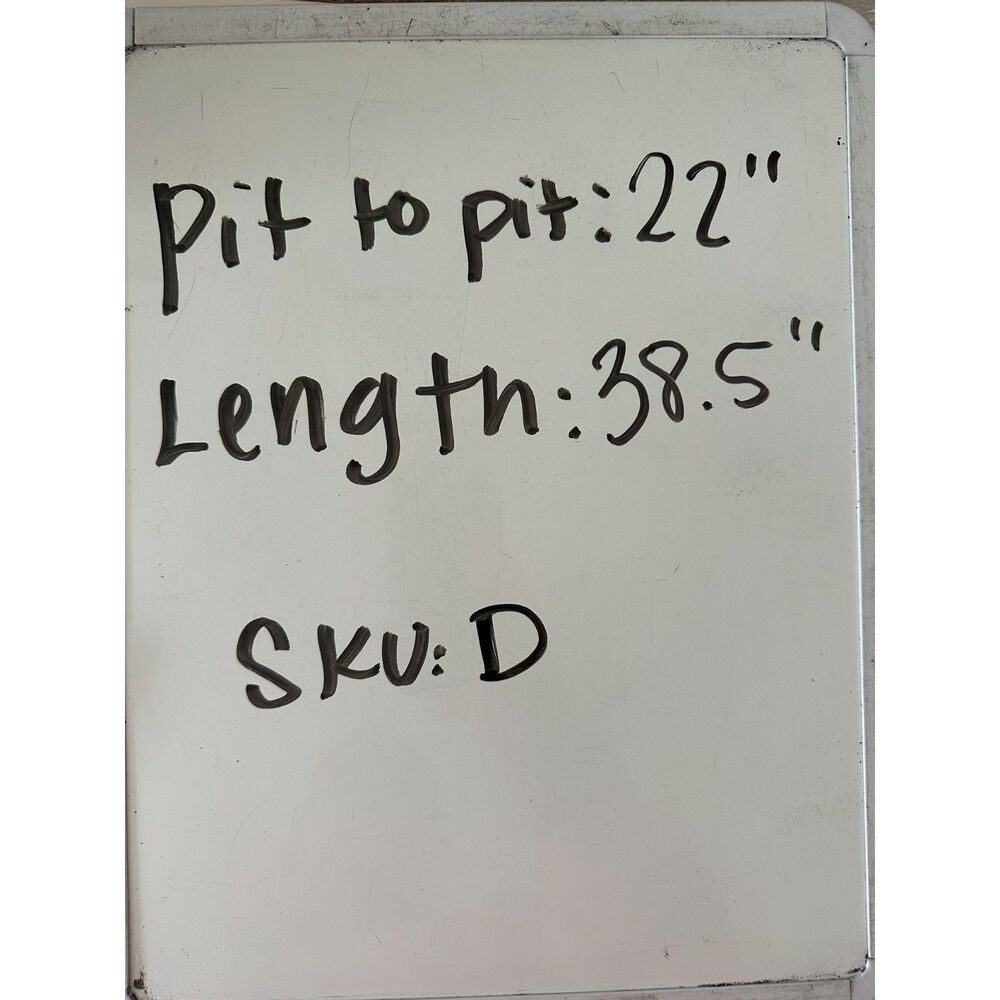 Pit to pit: 22"
Length: 38.5"
SKU: D